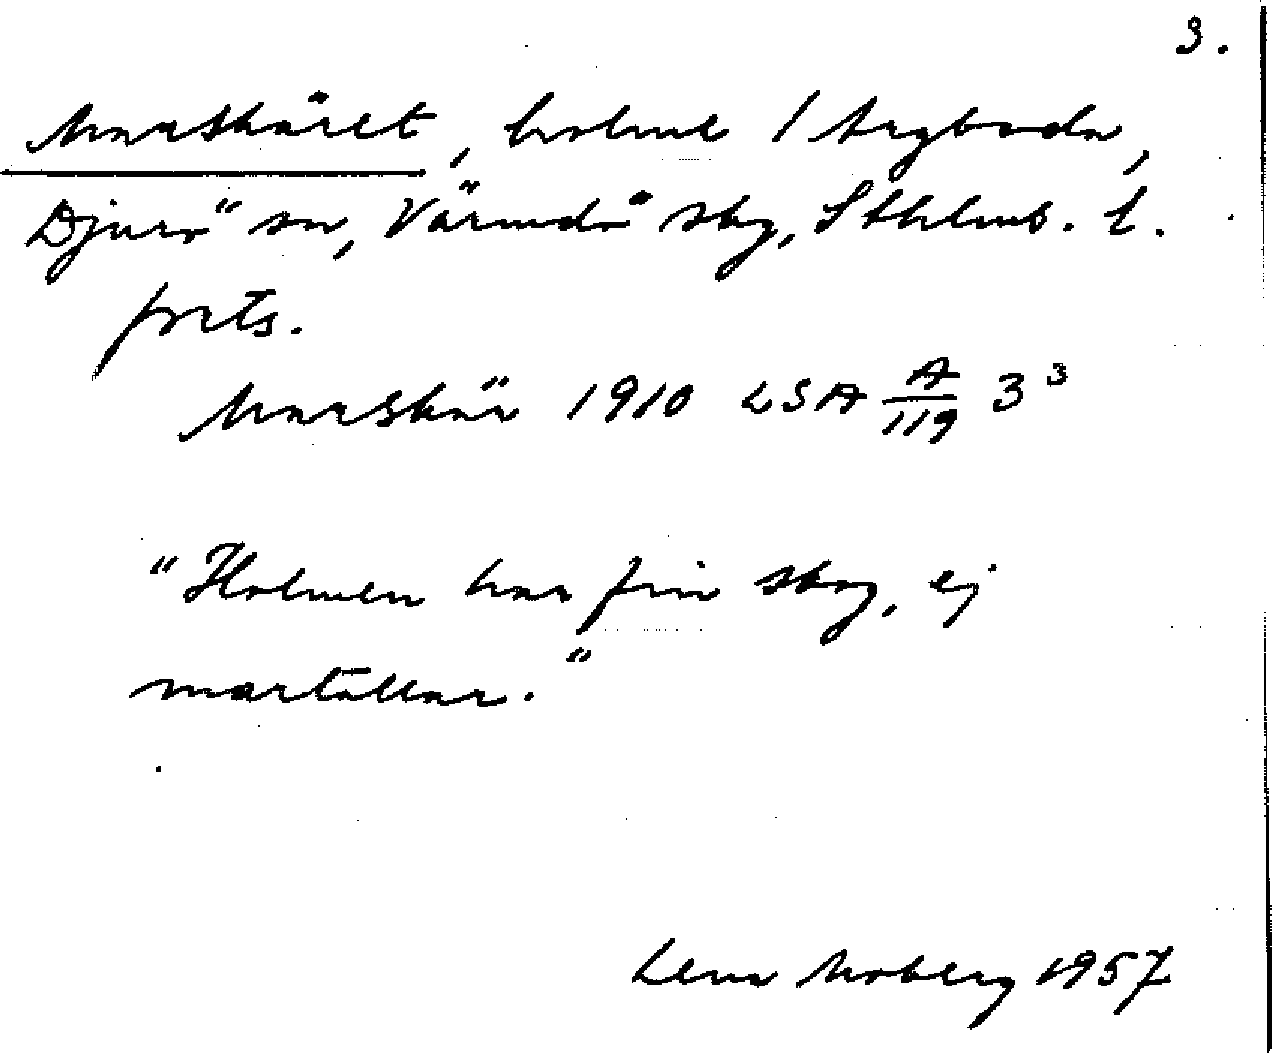 3.
Marskäret, holme / Aryboda,
Djurö sn, Värmdö skg, Sthlms. l.
forts.
Marskär 1910 LSA A/119 3³
"Holmen har fin skog, ej
martallar."
Lena Moberg 1957